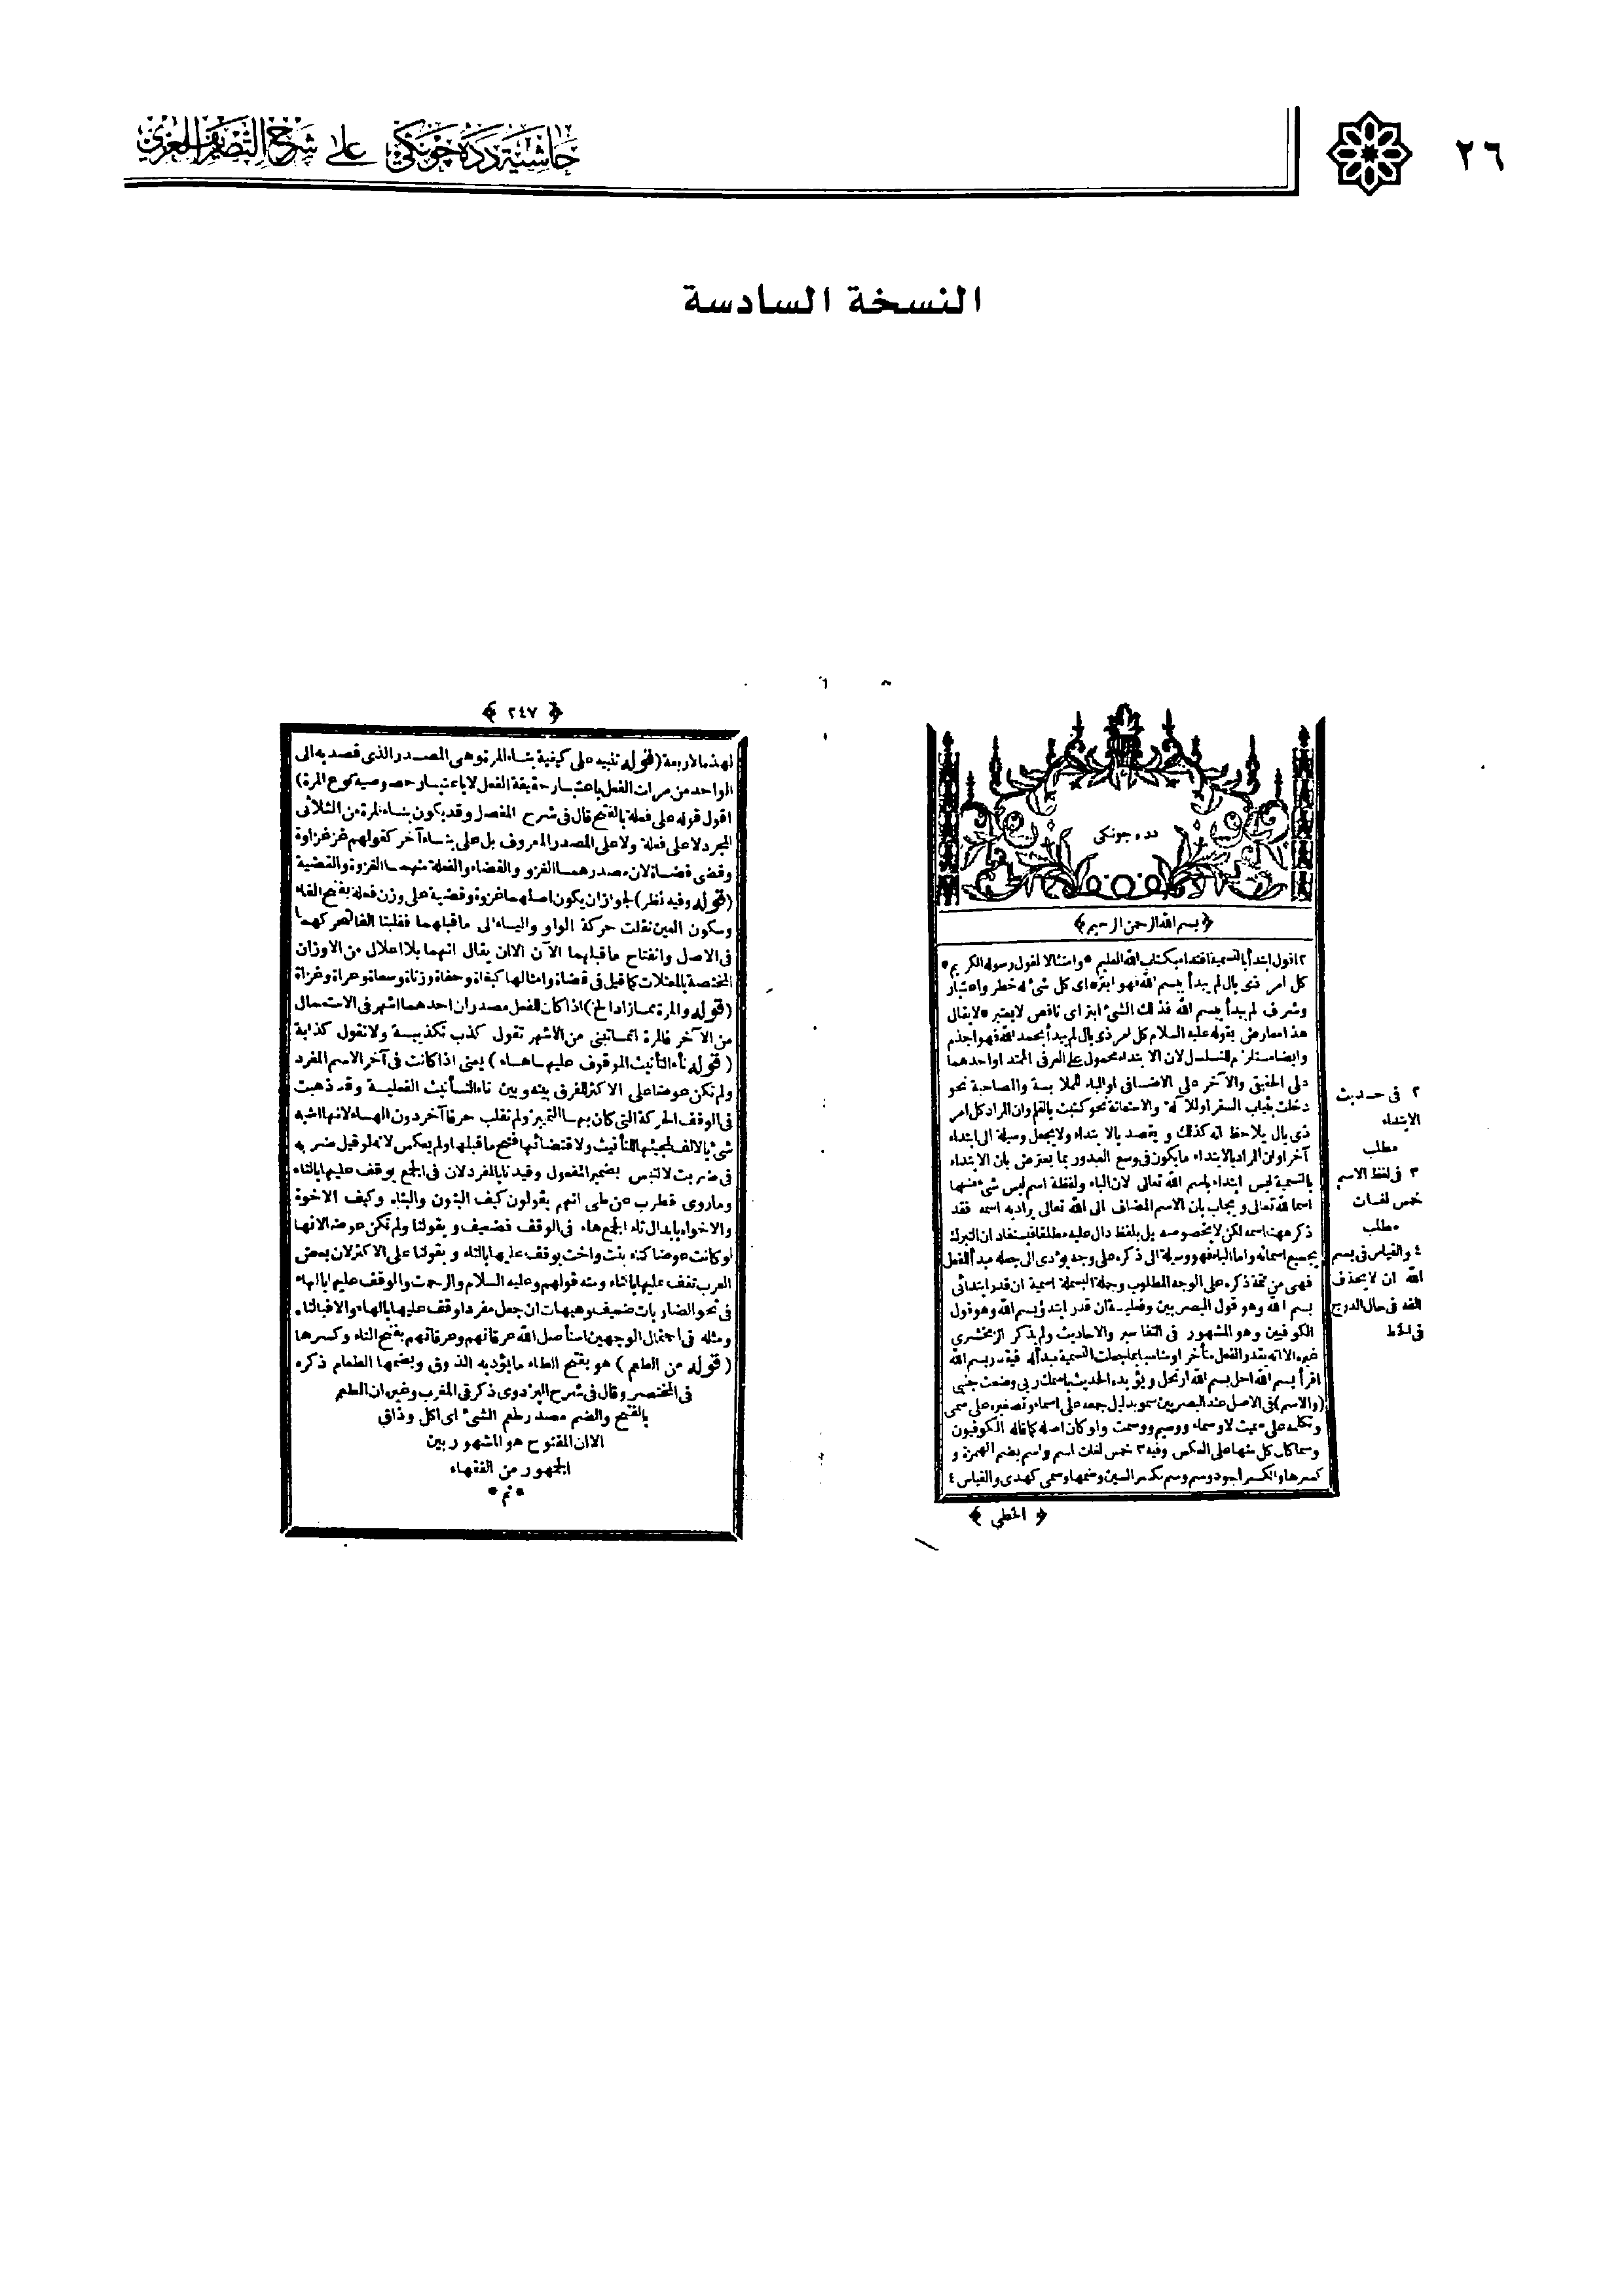 ٢٦
حاشية دده جونكي على شرح التصريف العزي
النسخة السادسة
دده جونكى
﴿ بسم الله الرحمن الرحيم ﴾
٢ اقول ابتدأ بالتسمية اقتداء بكتاب الله العظيم * وامتثالا لقول رسوله الكريم *
كل امر ذى بال لم يبدأ ببسم الله فهو ابتر اى كل شئ له خطر واعتبار
وشرف لم يبدأ ببسم الله فذلك الشئ ابتر اى ناقص لا يعتبر * لا يقال
هذا معارض بقوله عليه السلام كل امر ذى بال لم يبدأ بحمد الله فهو اجذم
وايضا مستلزم للتسلسل لان الابتداء محمول على العرفى الممتد او احدهما
على الحقيقى والآخر على الاضافى او الباء للملابسة والمصاحبة نحو
دخلت بثياب السفر او للآلة والاستعانة نحو كتبت بالقلم وان المراد كل امر
ذى بال يلاحظ انه كذلك و يقصد بالابتداء ولا يجعل وسيلة الى ابتداء
آخر او ان المراد بالابتداء ما يكون فى وسع العبد وربما يعترض بان الابتداء
بالتسمية ليس ابتداء باسم الله تعالى لان الباء ولفظة اسم ليس شئ منهما
اسما لله تعالى و يجاب بان الاسم المضاف الى الله تعالى يراد به اسمه فقد
ذكر ههنا اسمه لكن لا بخصوصه بل بلفظ دال عليه مطلقا فيستفاد ان التبرك
بجميع اسمائه واما الباء فهو وسيلة الى ذكره على وجه يؤدى الى جعله مبدأ الفعل
فهى من تتمة ذكره على الوجه المطلوب وجملة البسملة اسمية ان قدر ابتدائى
بسم الله وهو قول البصريين وفعلية ان قدر ابتدئ بسم الله وهو قول
الكوفيين وهو المشهور فى التفاسير والاحاديث ولم يذكر الزمخشرى
غيره الا انه يقدر الفعل متأخرا ومناسبا لما جعلت التسمية مبدأ له فيقدر بسم الله
اقرأ بسم الله احل بسم الله ارتحل و يؤيده الحديث باسمك ربى وضعت جنبى
(والاسم) فى الاصل عند البصريين سمو بدليل جمعه على اسماء وتصغيره على سمى
وتكلمه على سميت لا وسماء ووسيم ووسمت ولو كان اصله كما قاله الكوفيون
وسما كان كل منها على العكس وفيه ٣ خمس لغات اسم واسم بضم الهمزة و
كسرها والكسر اجود وسم وسم بكسر السين وضمها وسمى كهدى والقياس ٤
﴿ الخطى ﴾
٢ فى حديث
الابتداء
مطلب
٣ فى لفظ الاسم
خمس لغات
مطلب
٤ والقياس فى بسم
الله ان لا يحذف
الفه فى حال الدرج
فى الخط
﴿ ٢٤٧ ﴾
لهذه الاربعة (قوله تنبيه على كيفية بناء المرة وهى المصدر الذى قصد به الى
الواحد من مرات الفعل باعتبار حقيقة الفعل لا باعتبار خصوصية نوع المرة)
اقول قوله على فعلة بالفتح قال فى شرح المفصل وقد يكون بناء المرة من الثلاثى
المجرد لا على فعلة ولا على المصدر المعروف بل على بناء آخر كقولهم غز غزاوة
وقضى قضاة لان مصدرهما الغزو والقضاء والفعلة منهما الغزوة والقضية
(قوله وفيه نظر) لجواز ان يكون اصلهما غزوة وقضية على وزن فعلة بفتح الفاء
وسكون العين نقلت حركة الواو والياء الى ما قبلهما فقلبتا الفا لتحركهما
فى الاصل وانفتاح ما قبلهما الآن الا ان يقال انهما بلا اعلال من الاوزان
المختصة بالمعتلات كما قيل فى قضاة وامثالها كبغاة وحفاة وزناة وسعاة وعراة وغزاة
(قوله والمرة مما زاد الخ) اذا كان للفعل مصدران احدهما اشهر فى الاستعمال
من الآخر فالمرة انما تبنى من الاشهر تقول كذب تكذيبة ولا تقول كذابة
(قوله تاء التأنيث الموقوف عليها هاء) يعنى اذا كانت فى آخر الاسم المفرد
ولم تكن عوضا على الاكثر للفرق بينه و بين تاء التأنيث الفعلية وقد ذهبت
فى الوقف الحركة التى كان بها التمييز ولم تقلب حرفا آخر دون الهاء لانها اشبه
شئ بالالف لمجيئها للتأنيث ولاقتضائها فتح ما قبلها ولم يعكس لانه لو قيل ضربه
فى ضربت لالتبس بضمير المفعول وقيدنا بالمفرد لان فى الجمع يوقف عليها بالتاء
وما روى قطرب عن طى انهم يقولون كيف البنون والبناه وكيف الاخوة
والاخواه بابدال تاء الجمع هاء فى الوقف فضعيف و بقولنا ولم تكن عوضا لانها
لو كانت عوضا كتاء بنت واخت يوقف عليها بالتاء و بقولنا على الاكثر لان بعض
العرب تقف عليها بالتاء ومنه قولهم وعليه السلام والرحمت والوقف عليها بالهاء
فى نحو الضاربات ضعيف وهيهات ان جعل مفردا وقف عليها بالهاء والا فبالتاء
ومثله فى احتمال الوجهين استأصل الله عرقاتهم وعرقاتهم بفتح التاء وكسرها
(قوله من الطعم) هو بفتح الطاء ما يؤديه الذوق و بضمها الطعام ذكره
فى المختصر وقال فى شرح البزدوى ذكر فى المغرب وغيره ان الطعم
بالفتح والضم مصدر طعم الشئ اى اكل وذاق
الا ان المفتوح هو المشهور بين
الجمهور من الفقهاء
* تم *